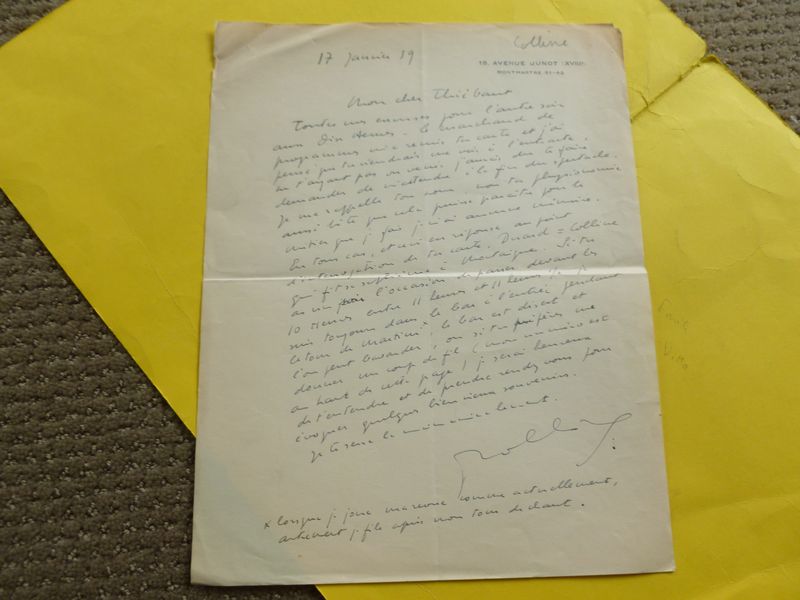 Colline
17 Janvier 19
18, AVENUE JUNOT (XVIIIe)
MONTMARTRE 51-42
Mon cher Thiébaut
Toutes mes excuses pour l'autre soir
aux Dix Heures. Le marchand de
programmes m'a remis ta carte et j'ai
pensé que tu viendrais me voir à l'entracte.
ne t'ayant pas vu venir j'aurais dû te faire
demander de m'attendre à la fin du spectacle.
Je me rappelle ton nom, non ta physionomie
aussi bête que cela puisse paraître pour le
métier que je fais je n'ai aucune mémoire.
En tous cas, et ceci en réponse au point
d'interrogation de ta carte, = Colline
qui fit sa à Montaigne. Si tu
as un soir l'occasion de passer devant les
10 Heures entre 11 heures et 11 heures 1/2 je
suis toujours dans le bar à l'entrée pendant
le tour de Martini x le bar est discret et
l'on peut bavarder, ou si tu préfères me
donner un coup de fil (mon numéro est
au haut de cette page) je serai heureux
de t'entendre et de prendre rendez vous pour
évoquer quelques bien vieux souvenirs.
Je te serre la main amicalement.
Colline
x lorsque je joue ma revue comme actuellement,
autrement je file après mon tour de chant.
Emile